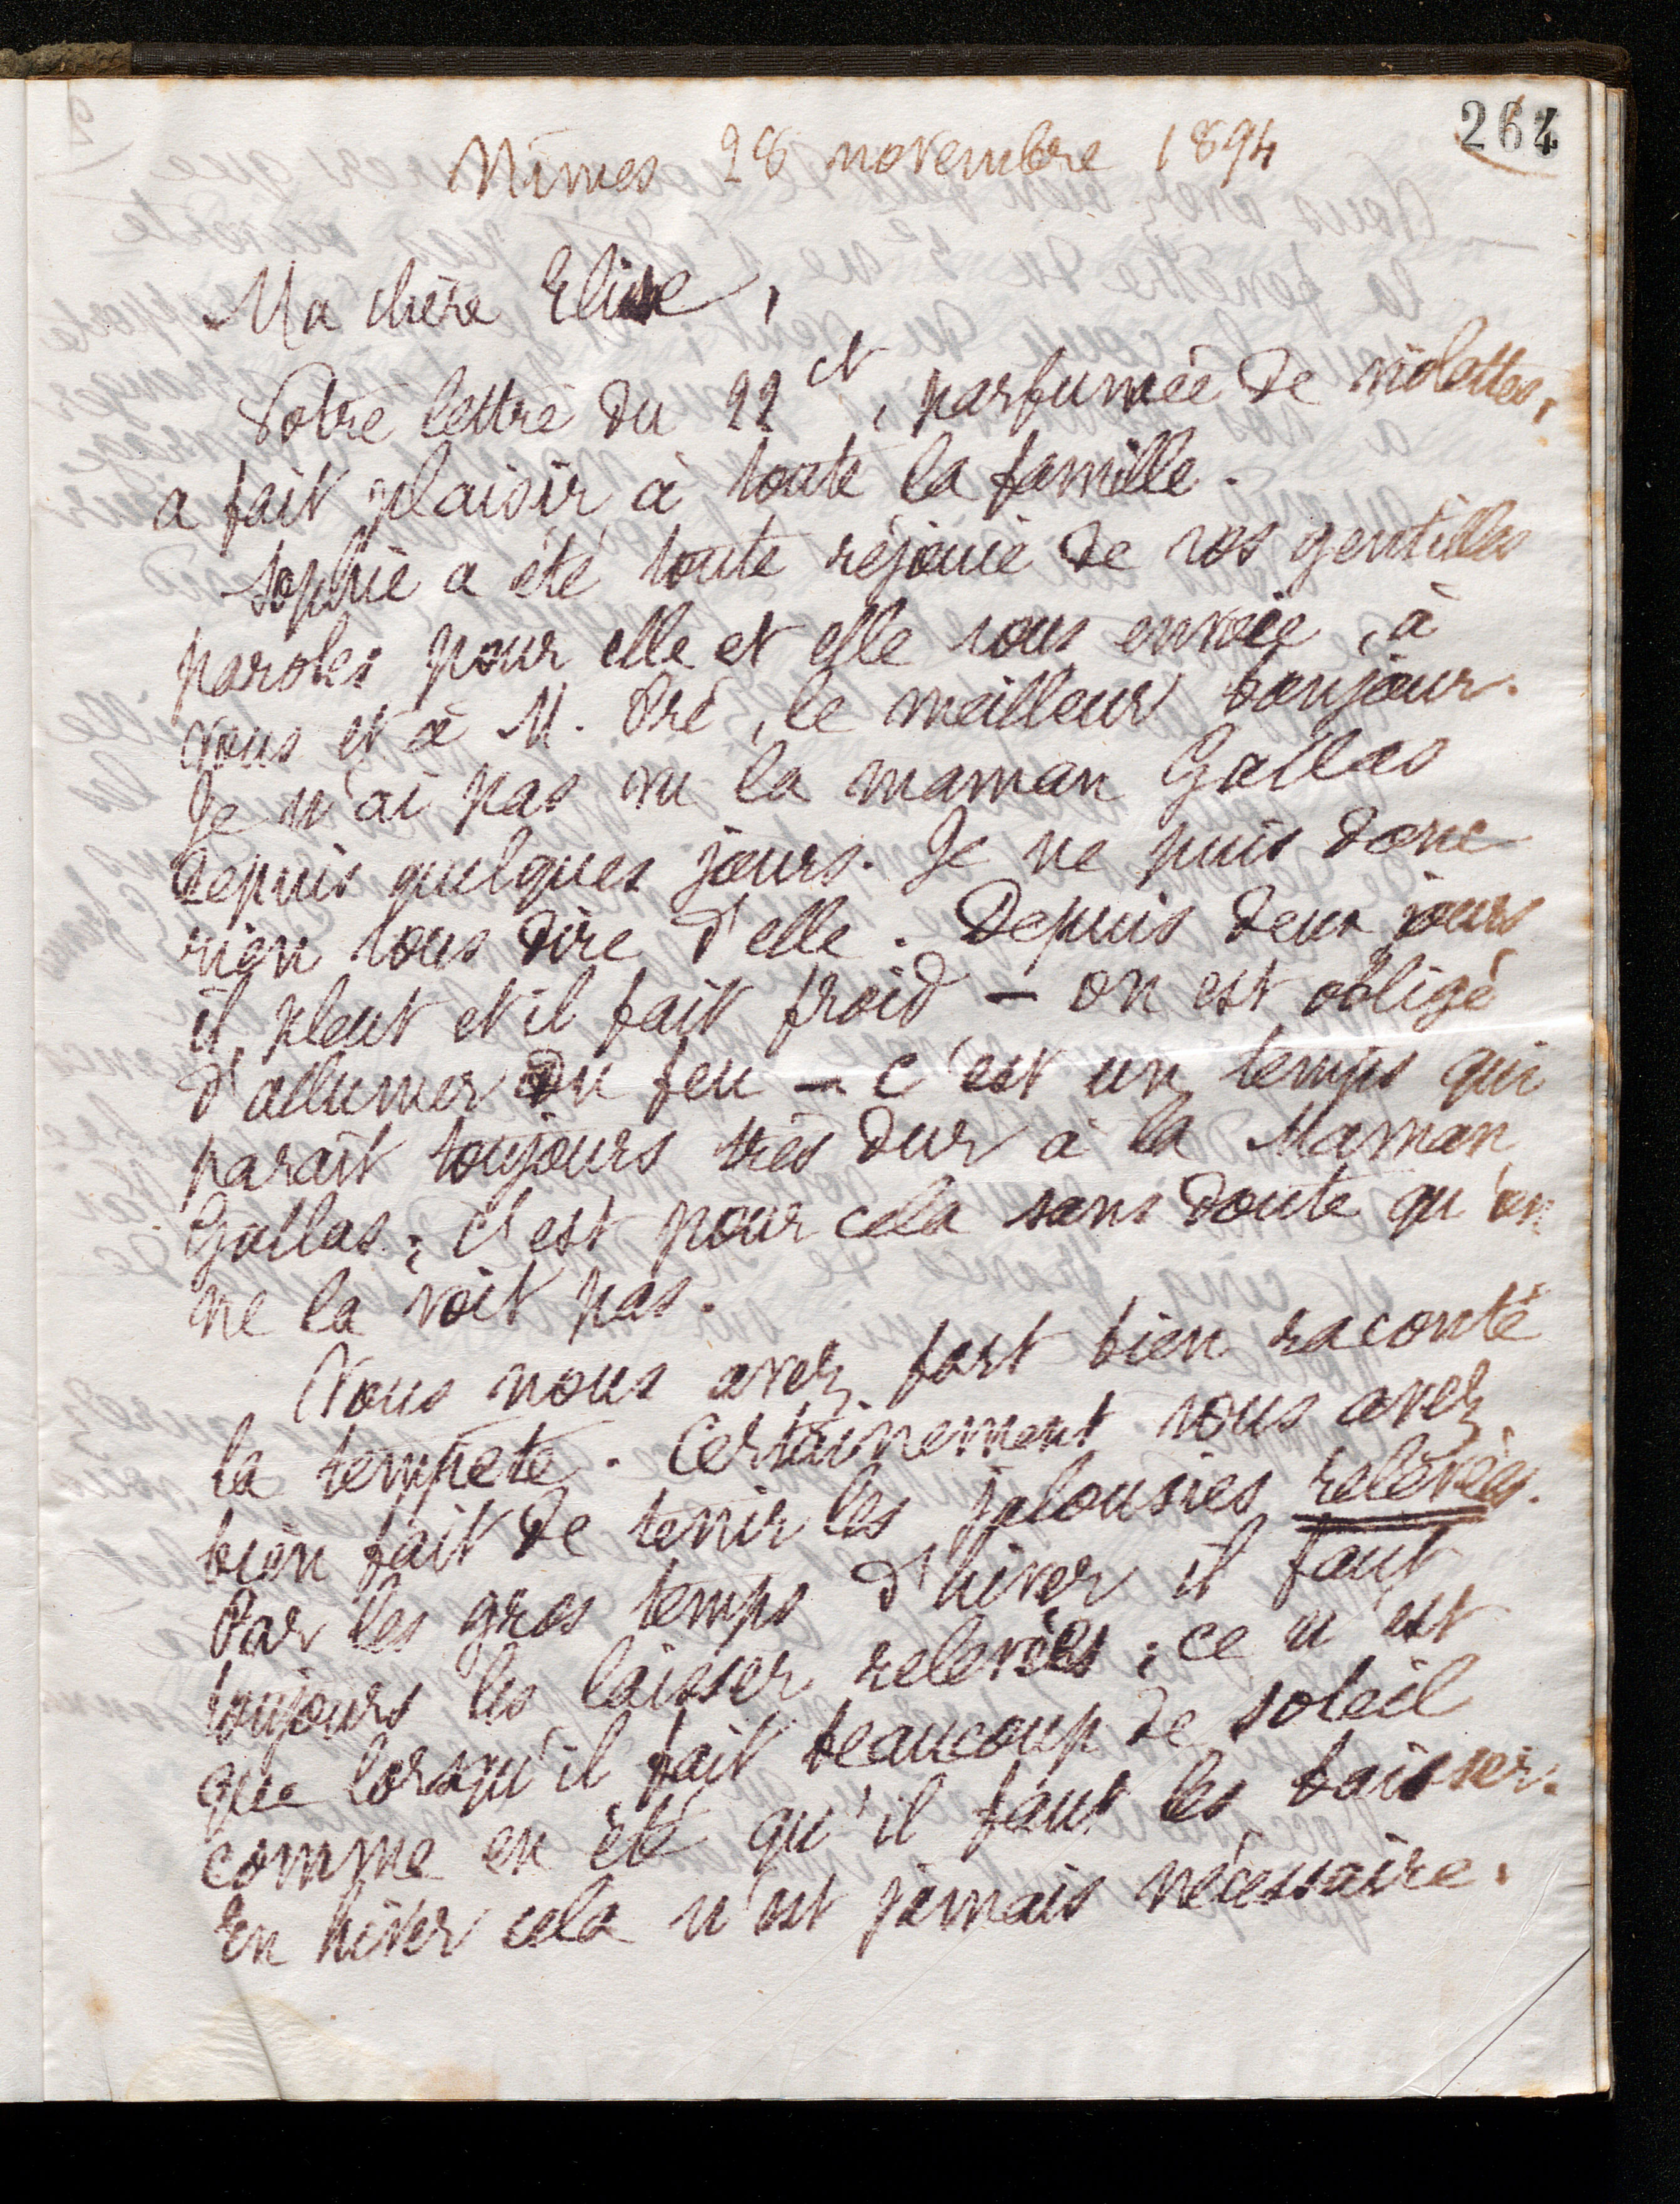 264
Nîmes 28 novembre 1894
Ma chère Elise,
Votre lettre du 22 ct, parfumée de violettes,
a fait plaisir à toute la famille.
Sophie a été toute réjouie de vos gentilles
paroles pour elle et elle vous envoie, à
vous et à M. Pré, le meilleur bonjour.
Je n'ai pas vu la maman Gallas
depuis quelques jours. Je ne puis donc
rien vous dire d'elle. Depuis deux jours
il pleut et il fait froid — on est obligé
d'allumer du feu — c'est un temps qui
paraît toujours très dur à la Maman
Gallas; c'est pour cela sans doute qu'on
ne la voit pas.
Vous nous avez fort bien raconté
la tempête. Certainement vous avez
bien fait de tenir les jalousies relevées.
Par les gros temps d'hiver il faut
toujours les laisser relevées; ce n'est
que lorsqu'il fait beaucoup de soleil
comme en été qu'il faut les baisser.
En hiver cela n'est jamais nécessaire.